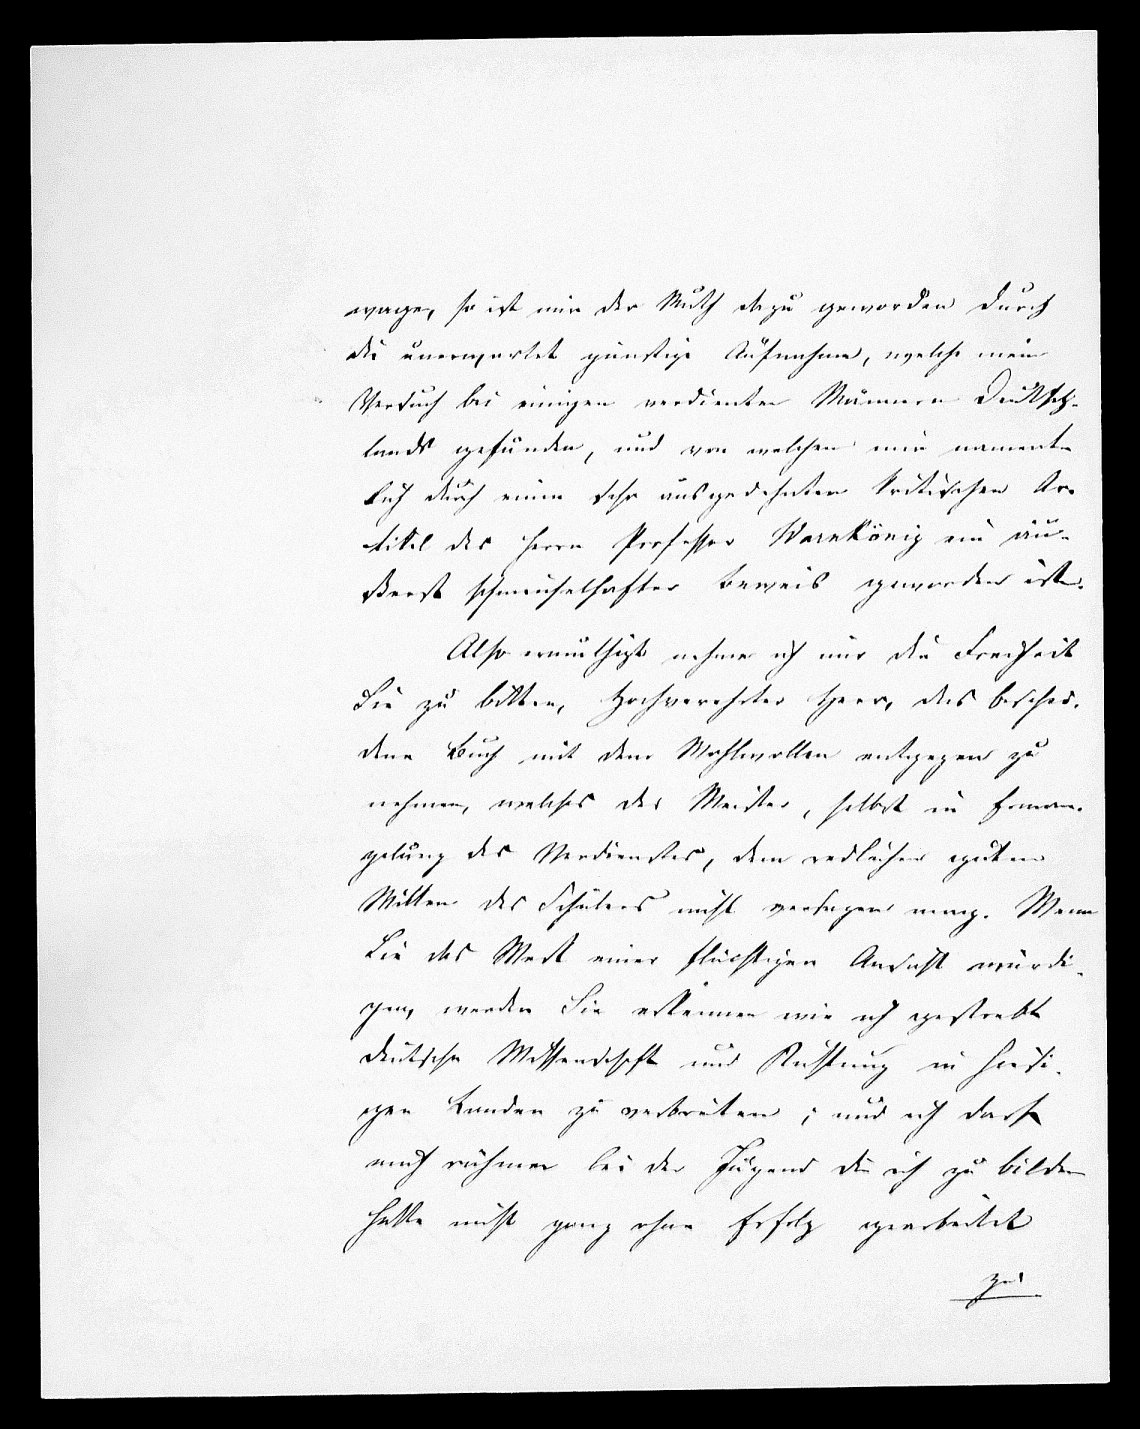 wage, so ist mir der Muth dazu geworden durch
die unerwartet günstige Aufnahme, welche mein
Versuch bei einigen verdienten Männern Deutsch-
lands gefunden, und von welchen mir nament-
lich durch einen sehr ausgedehnten kritischen Ar-
tikel des Herrn Professor Warnkönig ein äu-
ßerst schmeichelhafter Beweis geworden ist.
Also ermuthigt nehme ich mir die Freiheit
Sie zu bitten, Hochverehrter Herr, das beschei-
dene Buch mit dem Wohlwollen entgegen zu
nehmen, welches der Meister, selbst in Erman-
gelung des Verdienstes, dem redlichen guten
Willen des Schülers nicht versagen mag. Wenn
Sie das Werk einer flüchtigen Ansicht würdi-
gen, werden Sie erkennen wie ich gestrebt
deutsche Wissenschaft und Richtung in hiesi-
gen Landen zu verbreiten; und ich darf
mich rühmen bei der Jugend die ich zu bilden
hatte nicht ganz ohne Erfolg gearbeitet
zu